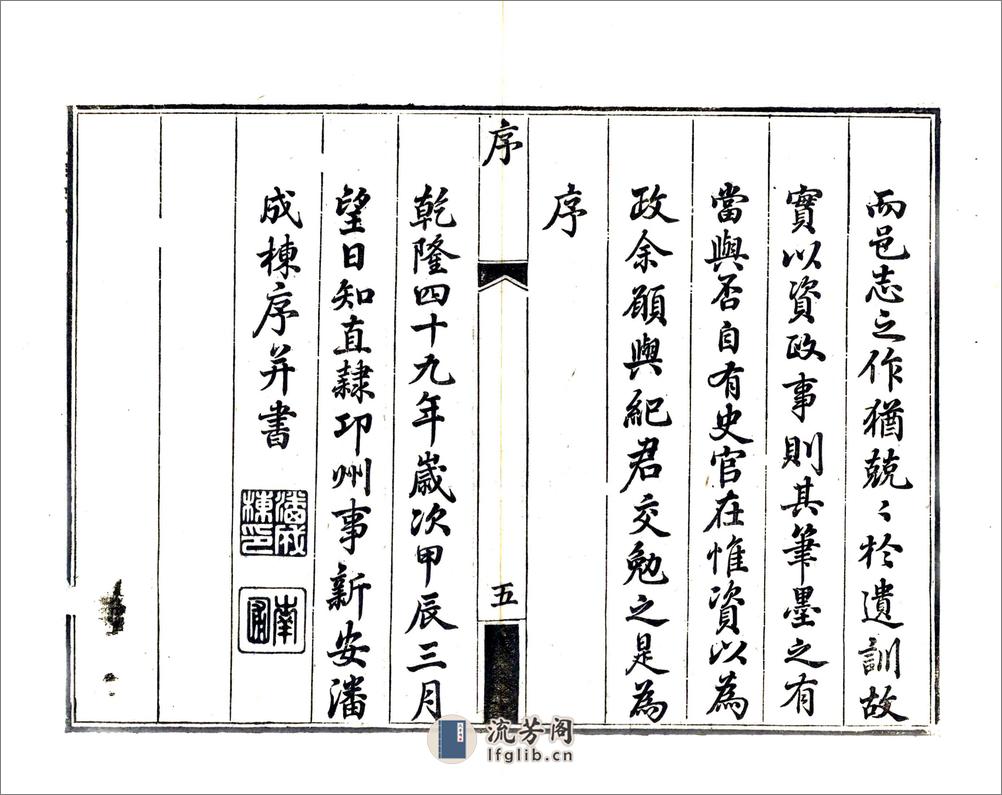 而邑志之作猶兢〻於遺訓故
實以資政事則其筆墨之有
當與否自有史官在惟資以為
政余願與紀君交勉之是為
序
序
五
乾隆四十九年歲次甲辰三月
望日知直隸邛州事新安潘
成棟序并書
潘成棟印
流芳阁
lfglib.cn